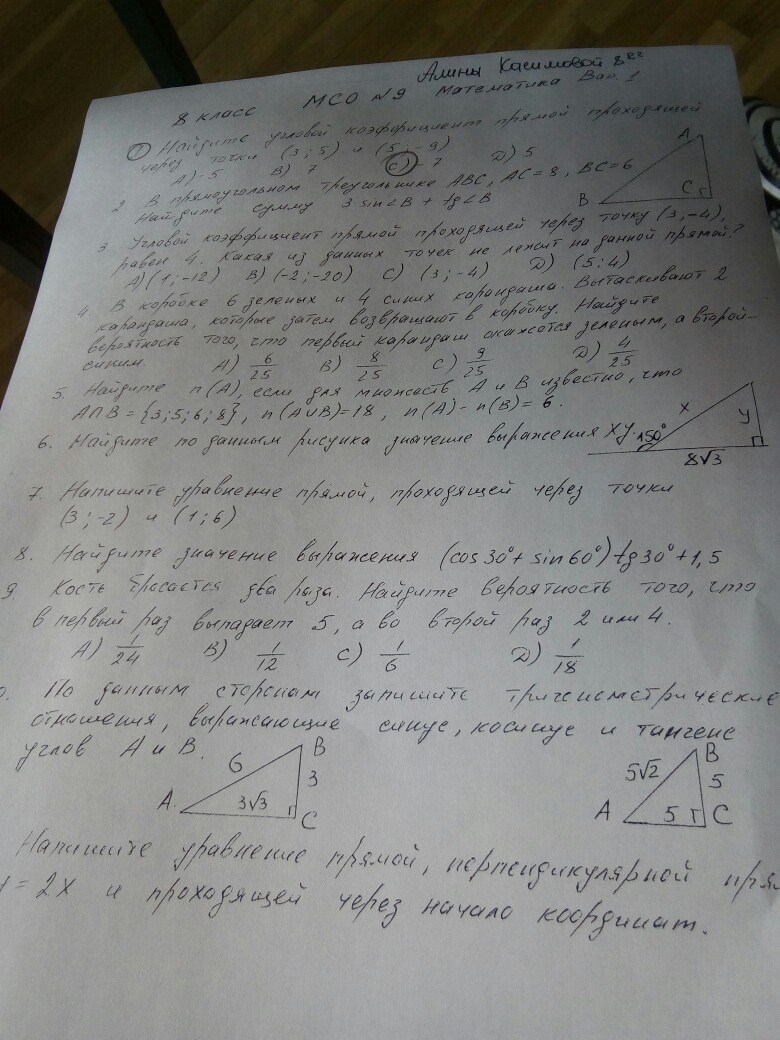 Алины Касимовой 8
8 класс МСО №9 Математика Вар. 1
1 Найдите угловой коэффициент прямой проходящей
через точки (3; 5) и (5; -9)
A) -5 B) 7 C) -7 D) 5
2 В прямоугольном треугольнике ABC, AC = 8, BC = 6
Найдите сумму 3 sin∠B + tg∠B
A
B
C
3 Угловой коэффициент прямой проходящей через точку (3; -4),
равен 4. Какая из данных точек не лежит на данной прямой?
A) (1; -12) B) (-2; -20) C) (3; -4) D) (5; 4)
4. В коробке 6 зеленых и 4 синих карандаша. Вытаскивают 2
карандаша, которые затем возвращают в коробку. Найдите
вероятность того, что первый карандаш окажется зеленым, а второй-
синим. A) 6/25 B) 8/25 C) 9/25 D) 4/25
5. Найдите n(A), если для множеств A и B известно, что
A∩B = {3; 5; 6; 8}, n(A∪B) = 18, n(A) - n(B) = 6.
6. Найдите по данным рисунка значение выражения xy.
150°
x
y
8√3
7. Напишите уравнение прямой, проходящей через точки
(3; -2) и (1; 6)
8. Найдите значение выражения (cos 30° + sin 60°) · tg 30° + 1,5
9 Кость бросается два раза. Найдите вероятность того, что
в первый раз выпадает 5, а во второй раз 2 или 4.
A) 1/24 B) 1/12 C) 1/6 D) 1/18
0. По данным сторонам запишите тригонометрические
отношения, выражающие синус, косинус и тангенс
углов A и B.
6 B
3
A. 3√3 C
5√2 B
5
A 5 C
Напишите уравнение прямой, перпендикулярной пря
= 2x и проходящей через начало координат.